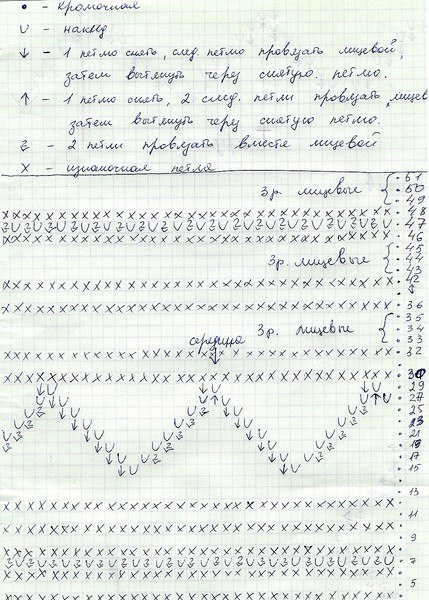 • - Кромочная
U - накид
↓ - 1 петлю снять, след. петлю провязать лицевой,
затем вытянуть через снятую петлю.
↑ - 1 петлю снять, 2 след. петли провязать лицев
затем вытянуть через снятую петлю.
- 2 петли провязать вместе лицевой
X - изнаночная петля
51
3р. лицевые 50
49
48
47
46
45
3р. лицевые 44
43
42
36
35
3р. лицевые 34
33
середина 32
30
29
27
25
23
21
19
17
15
13
11
9
7
5